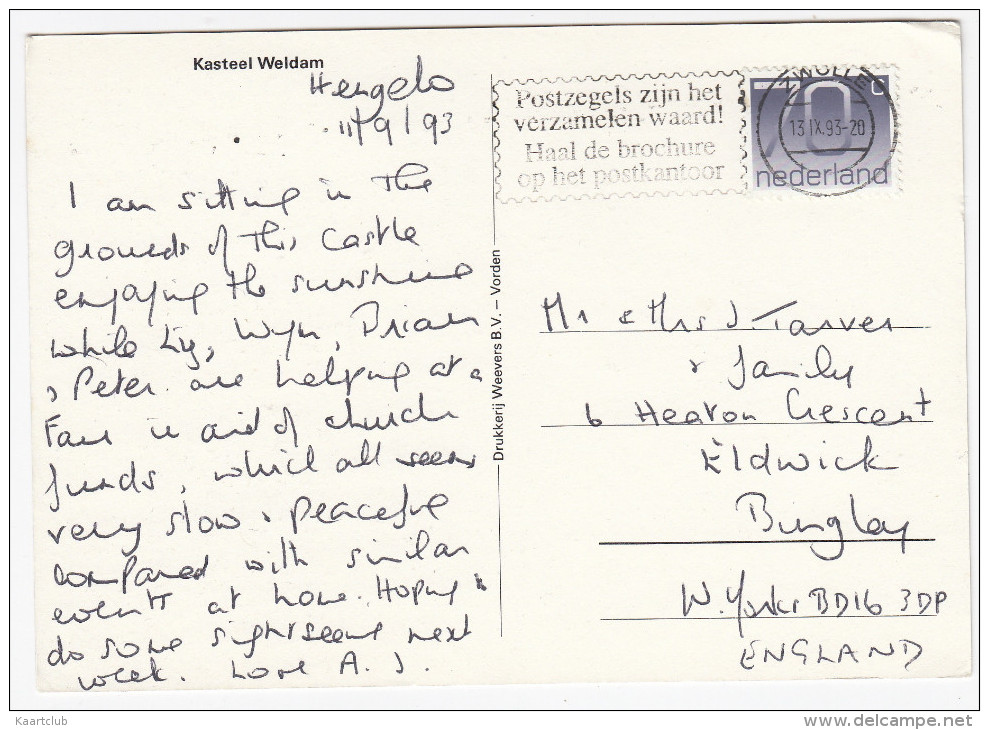 Kasteel Weldam
Hengelo
11/9/93
I am sitting in the
grounds of this Castle
enjoying the sunshine
while Liz, Wyn, Brian
& Peter are helping at a
Fair in aid of church
funds, which all seems
very slow & peaceful
compared with similar
events at home. Hoping to
do some sightseeing next
week. Love A. J.
Drukkerij Weevers B.V. – Vorden
Postzegels zijn het
verzamelen waard!
Haal de brochure
op het postkantoor
ZWOLLE
70 c
13 IX.93-20
nederland
Mr & Mrs J. Tarver
& family
6 Heaton Crescent
Eldwick
Bingley
W. Yorks BD16 3DP
ENGLAND
Kaartclub
www.delcampe.net